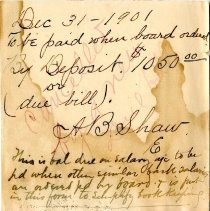 Dec 31 - 1901
To be paid when board ordered
By Deposit $1050.00
or
(due bill).
A B Shaw.
This is bal due on salary to be
pd when other similar back salary
an ordered pd by board & is put
in this form to simplify book keeping